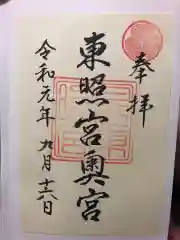 奉拝
東照宮奥宮
令和元年九月十六日